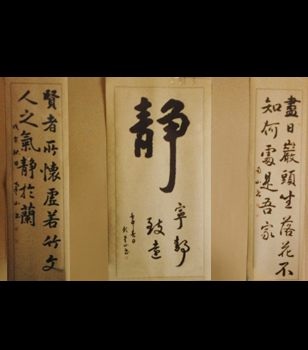 盡日巖頭坐落花不
知何處是吾家
静
寧静
致遠
賢者所懷虛若竹文
人之氣靜於蘭